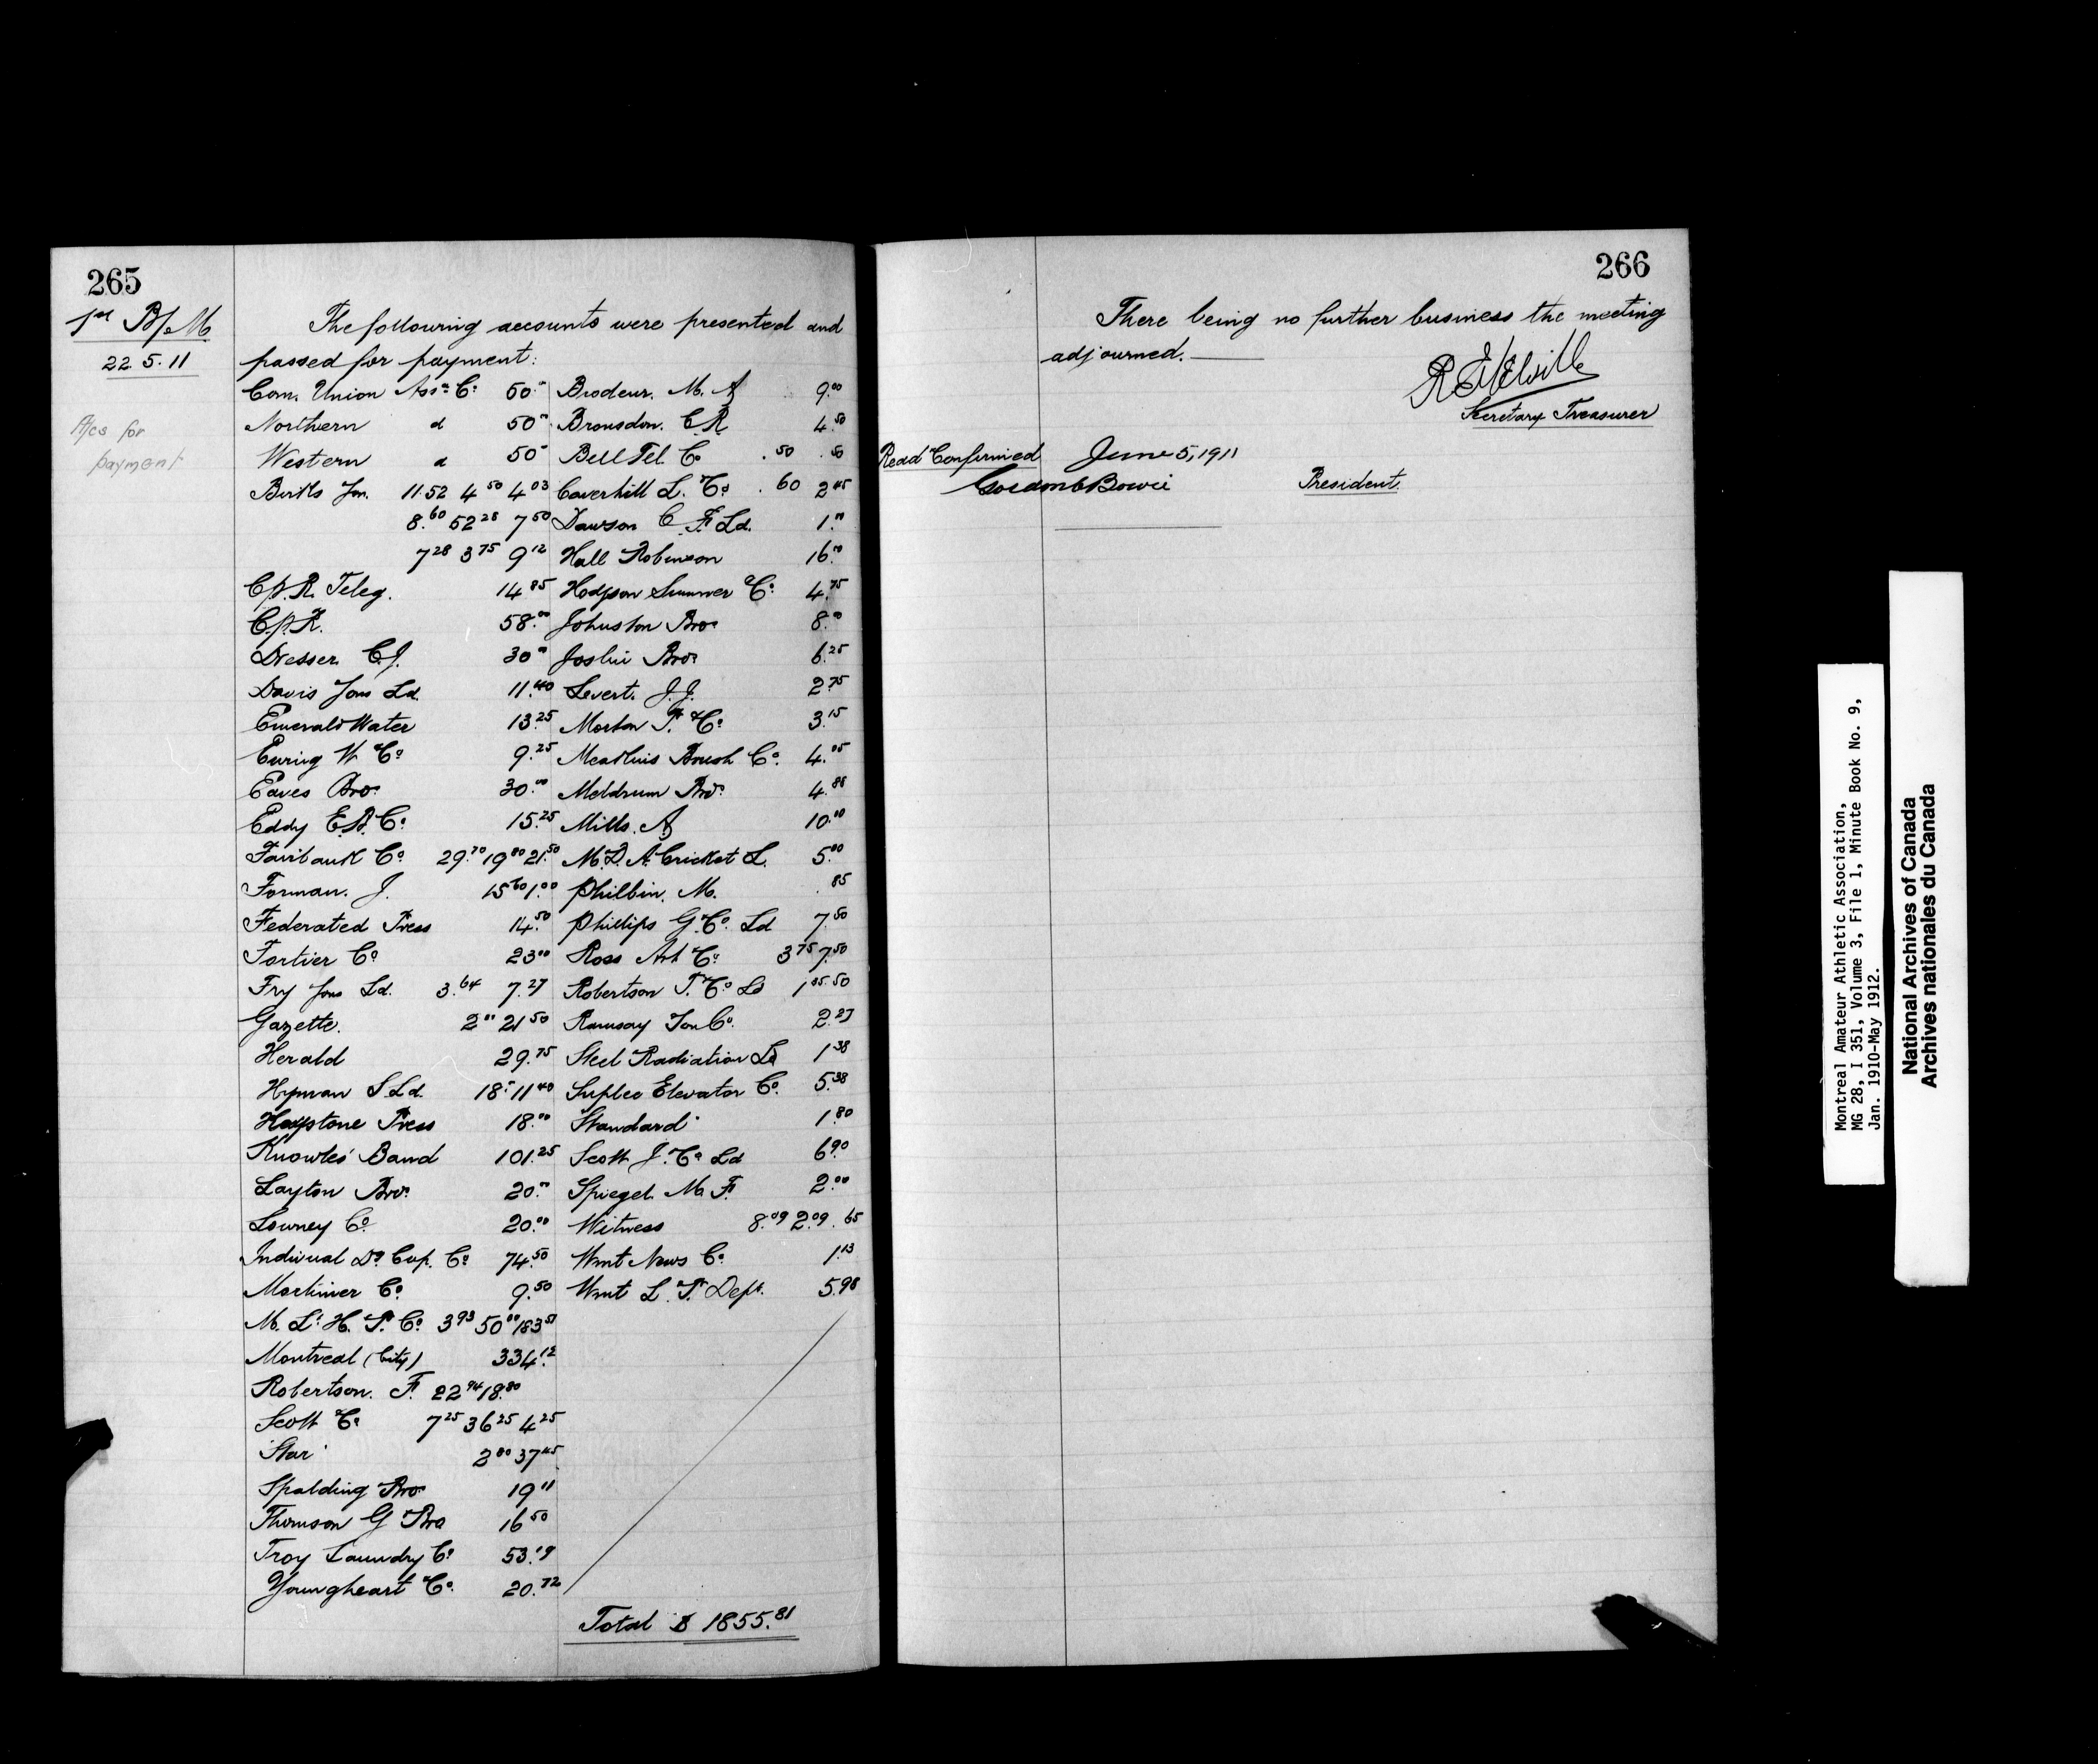 265
1st B/M.
22.5.11
A/cs for
payment
The following accounts were presented and
passed for payment:
Com. Union Assn Co 50.00 Brodeur. M. A 9.00
Northern d 50.00 Bronsdon. C R 4.50
Western d 50.00 Bell Tel. Co .50 .50
Birks Jon. 11.52 4.50 4.03 Caverhill L. & Co .60 2.45
8.60 52.28 7.50 Dawson C. F. Ld. 1.00
7.28 3.75 9.12 Hall Robinson 16.00
C.P.R. Teleg. 14.85 Hodgson Sumner & Co 4.75
C.P.R. 58.00 Johnston Bros 8.00
Dresser. C.J. 30.00 Joslin Bros 6.25
Davis Sons Ld. 11.40 Levert. J.J. 2.75
Emerald Water 13.25 Morton P. & Co 3.15
Ewing W & Co 9.25 Meakins Brush Co. 4.05
Eaves Bros 30.00 Meldrum Bros 4.88
Eddy E.B. Co 15.25 Mills. A 10.00
Fairbank Co 29.70 19.80 21.50 M.D. A. Cricket L. 5.00
Forman. J. 15.60 1.00 Philbin. M. .85
Federated Press 14.50 Phillips G. Co. Ld 7.50
Fortier Co 23.00 Ross Art Co 3.75 7.50
Fry Sons Ld. 3.64 7.27 Robertson T. & Co Ld 1.05 .50
Gazette. 2.00 21.50 Ramsay Son Co. 2.27
Herald 29.75 Steel Radiation Ld 1.38
Hyman S. Ld. 18.00 11.40 Suplee Elevator Co. 5.38
Haystone Press 18.00 Standard 1.80
Knowles' Band 101.25 Scott J. & Co Ld 6.90
Layton Bros 20.00 Spiegel. M. F. 2.00
Lowney Co 20.00 Witness 8.09 2.09 .65
Indivual Dg Cup. Co 74.50 Wmt News Co 1.13
Mortimer Co. 9.50 Wmt L. P. Dept. 5.98
M. L. H. P. Co 3.93 50.00 183.51
Montreal (City) 334.12
Robertson. F. 22.94 18.80
Scott & Co 7.25 36.25 4.25
'Star' 2.80 37.45
Spalding Bros 19.11
Thomson G Bro 16.50
Troy Laundry Co 53.19
Youngheart & Co. 20.72
Total $ 1855.81
266
There being no further business the meeting
adjourned.
Secretary Treasurer
Read Confirmed June 5, 1911
Gordon C Bowie President.
Montreal Amateur Athletic Association,
MG 28, I 351, Volume 3, File 1, Minute Book No. 9,
Jan. 1910-May 1912.
National Archives of Canada
Archives nationales du Canada